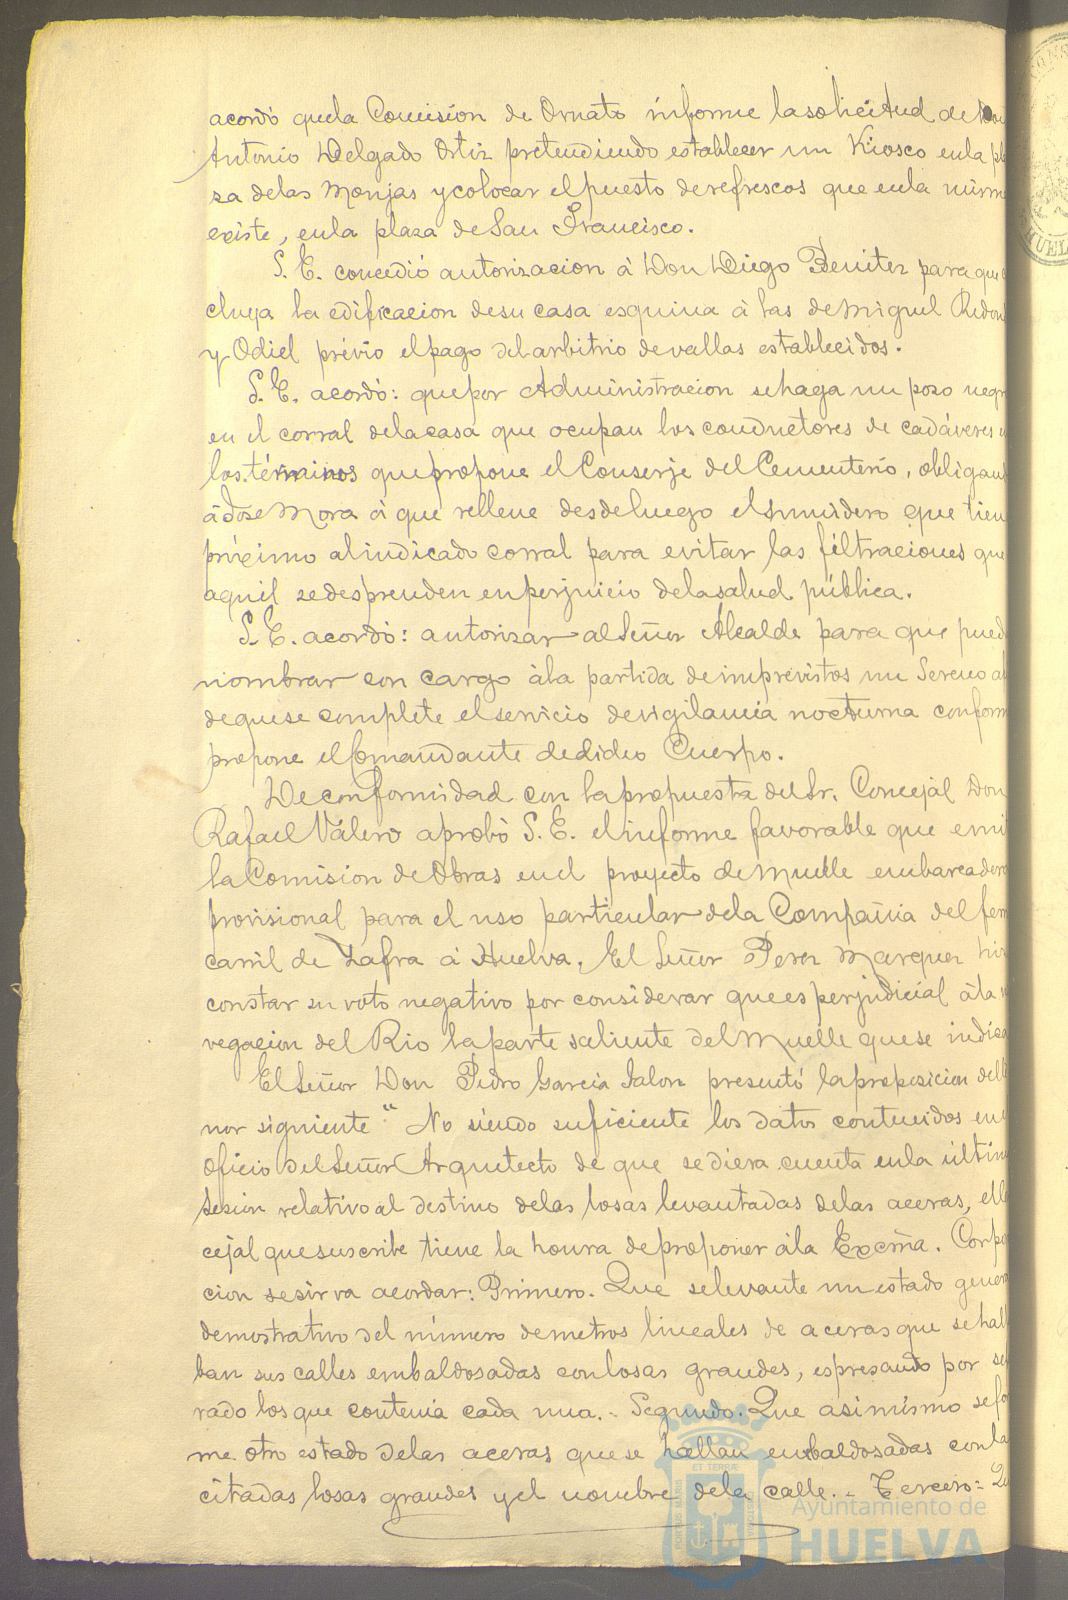 acordó que la Comisión de Ornato informe la solicitud de Don
Antonio Delgado Ortiz pretendiendo establecer un Kiosco en la pla
za de las Monjas y colocar el puesto de refrescos que en la misma
existe, en la plaza de San Francisco.
S. E. concedió autorizacion á Don Diego Benitez para que
cluya la edificacion de su casa esquina á las de Miguel Redon
y Odiel prévio el pago del arbitrio de vallas establecidos.
S. E. acordó: que por Administracion se haga un pozo negro
en el corral de la casa que ocupan los conductores de cadáveres en
los términos que propone el Conserje del Cementerio, obligan
á José Mora á que rellene desde luego el sumidero que tien
próximo al indicado corral para evitar las filtraciones que
aquil se desprenden en perjuicio de la salud pública.
S. E. acordó: autorizar al Señor Alcalde para que pueda
nombrar con cargo á la partida de imprevistos un Sereno á
de que se complete el servicio de vigilancia nocturna conform
propone el Comandante de dicho Cuerpo.
De conformidad con la propuesta del Sr. Concejal Don
Rafael Valero aprobó S. E. el informe favorable que emi
la Comision de Obras en el proyecto de Muelle embarcadero
provisional para el uso particular de la Compañia del ferro
carril de Zafra á Huelva. El Señor Perez Marquez hizo
constar su voto negativo por considerar que es perjudicial á la
vegacion del Rio la parte saliente del Muelle que se indica
El Señor Don Pedro Garcia Jalon presentó la proposicion del te
nor siguiente "No siendo suficiente los datos contenidos en el
oficio del Señor Arquitecto de que se diera cuenta en la última
sesion relativo al destino de las losas levantadas de las aceras, el Con
cejal que suscribe tiene la honra de proponer á la Excma. Corpo
cion se sirva acordar: Primero. Que se levante un estado general
demostrativo del número de metros lineales de aceras que se halla
ban sus calles embaldosadas con losas grandes, espresando por sepa
rado los que contenia cada una. - Segundo. Que asimismo se for
me otro estado de las aceras que se hallan embaldosadas con la
citadas losas grandes y el nombre de la calle. - Tercero = Que
Ayuntamiento de
HUELVA